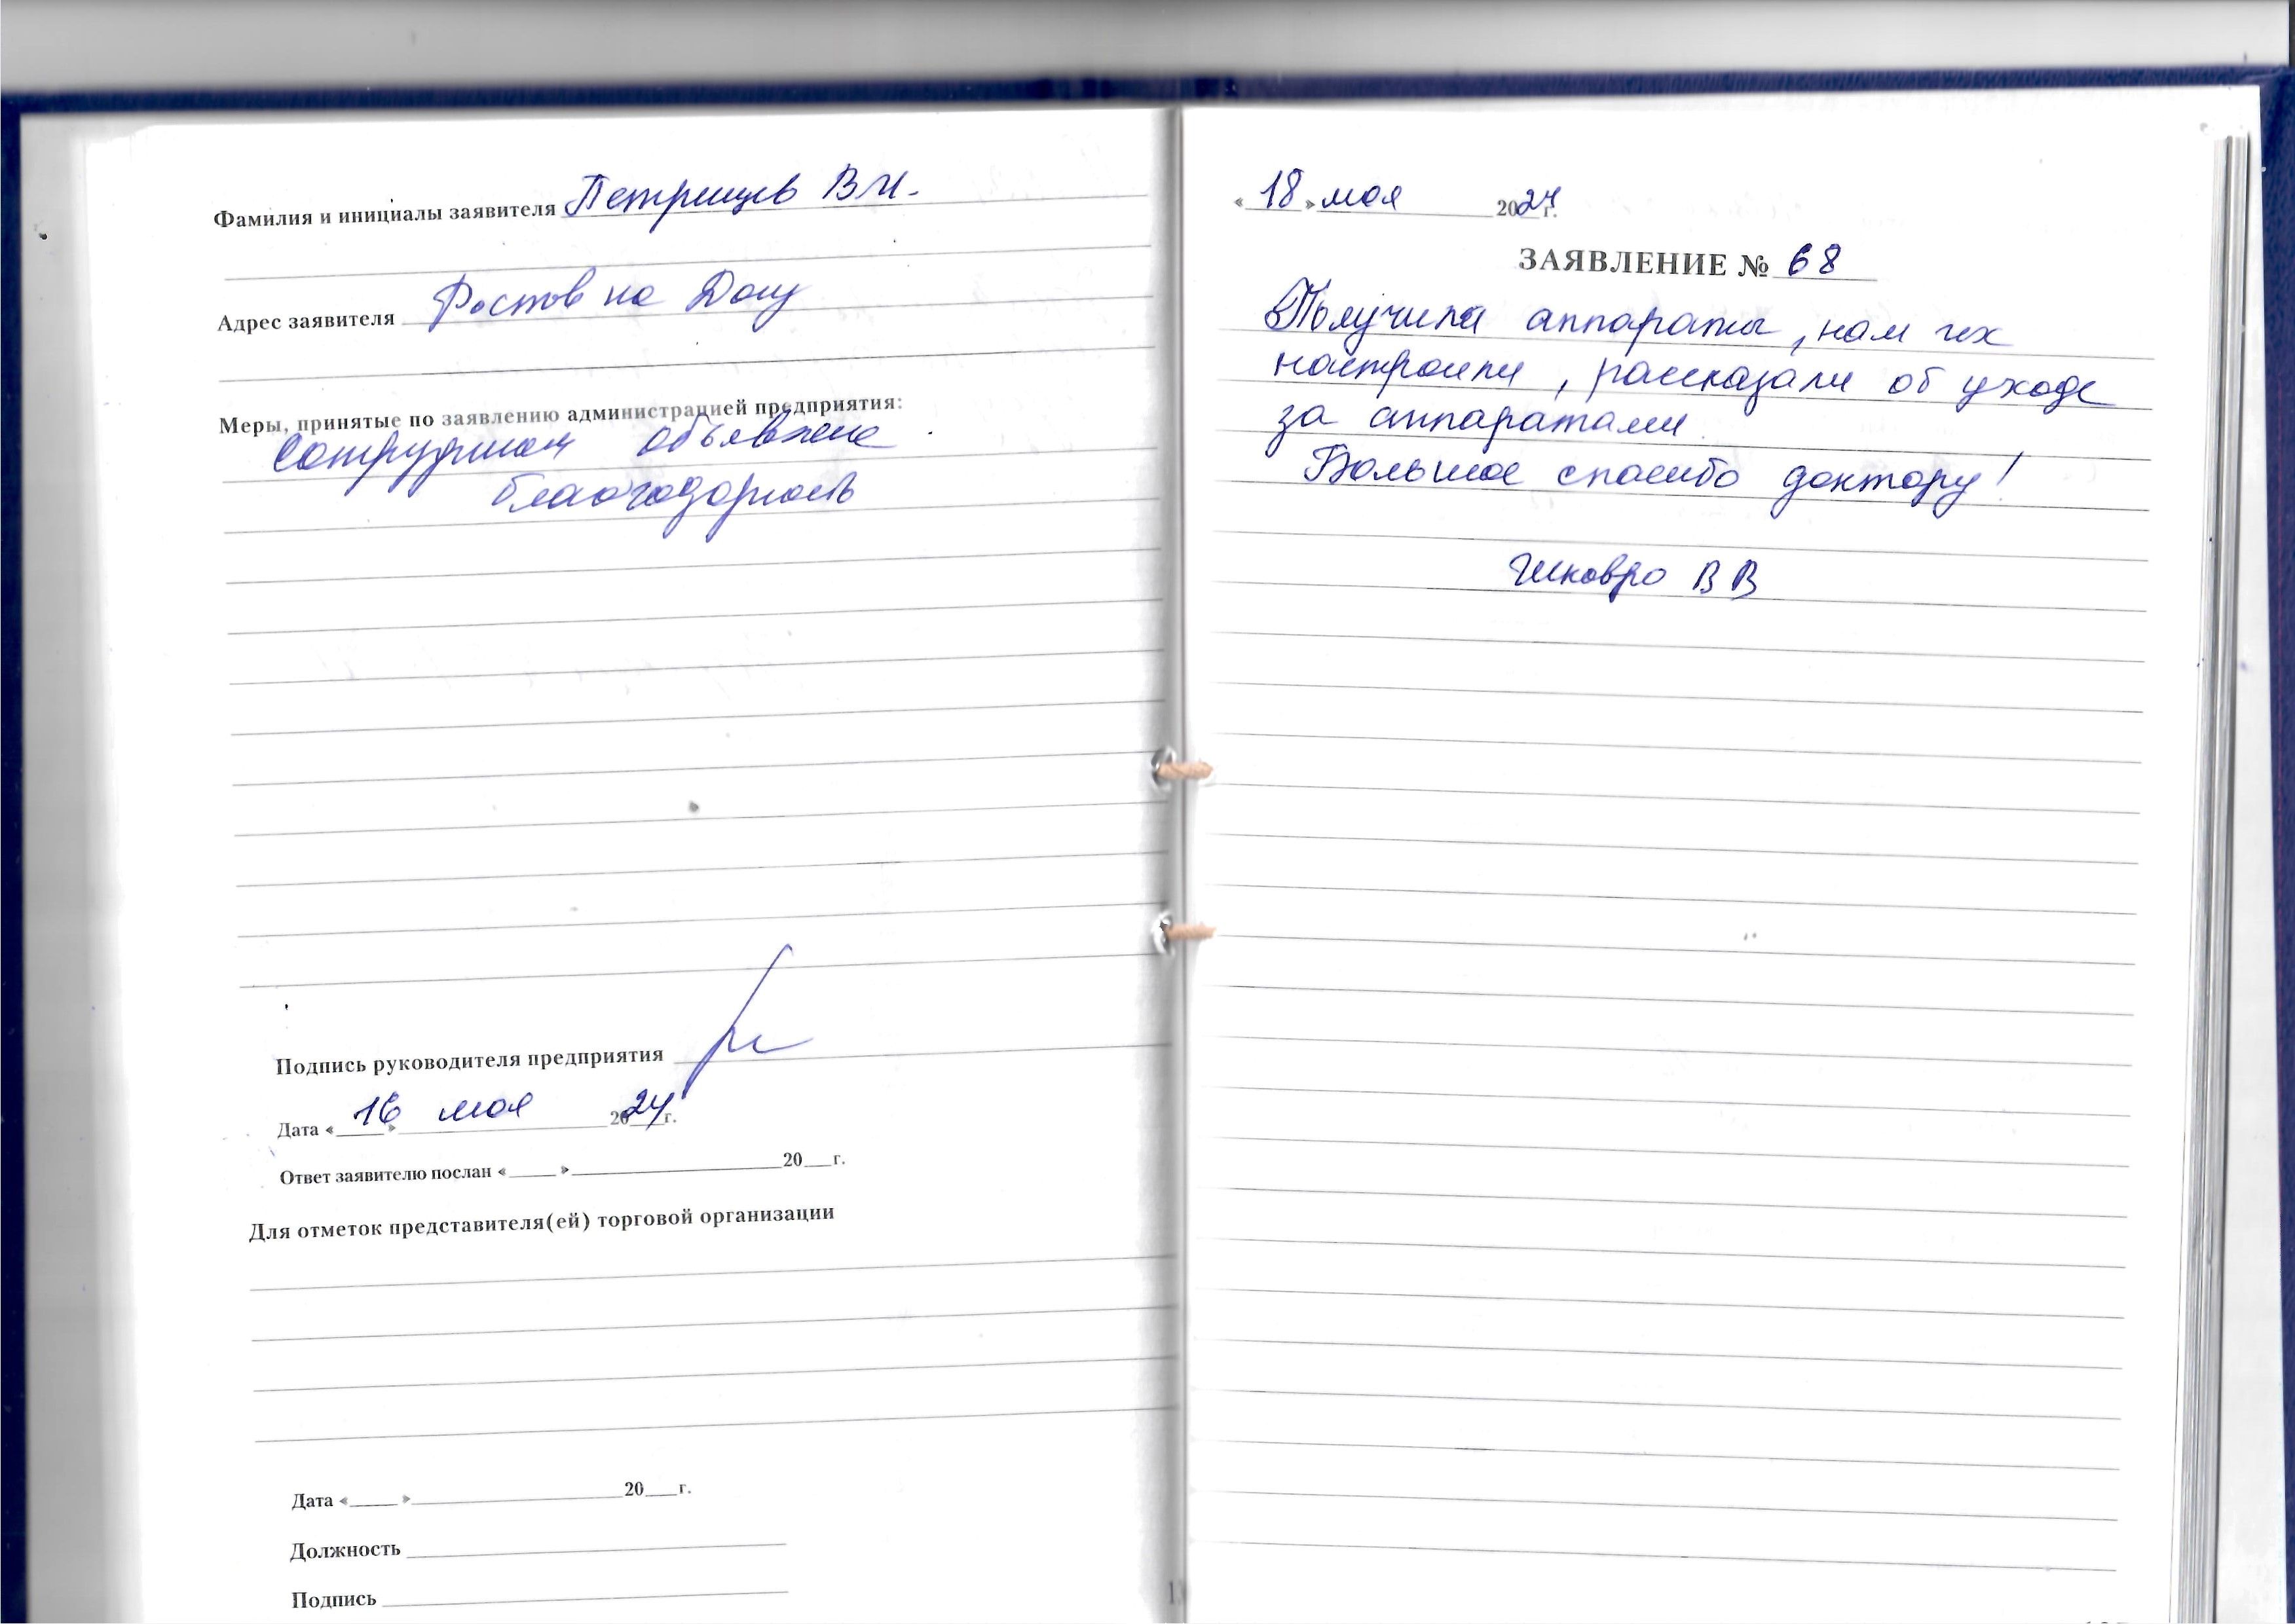 Фамилия и инициалы заявителя Петрищев В И.
Адрес заявителя Ростов на Дону
Меры, принятые по заявлению администрацией предприятия:
Сотрудникам объявлена
благодарность
Подпись руководителя предприятия
Дата « 16 » мая 2024 г.
Ответ заявителю послан « » 20 г.
Для отметок представителя(ей) торговой организации
Дата « » 20 г.
Должность
Подпись
« 18 » мая 2024 г.
ЗАЯВЛЕНИЕ № 68
Получила аппараты, нам их
настроили, рассказали об уходе
за аппаратами.
Большое спасибо доктору!
В В